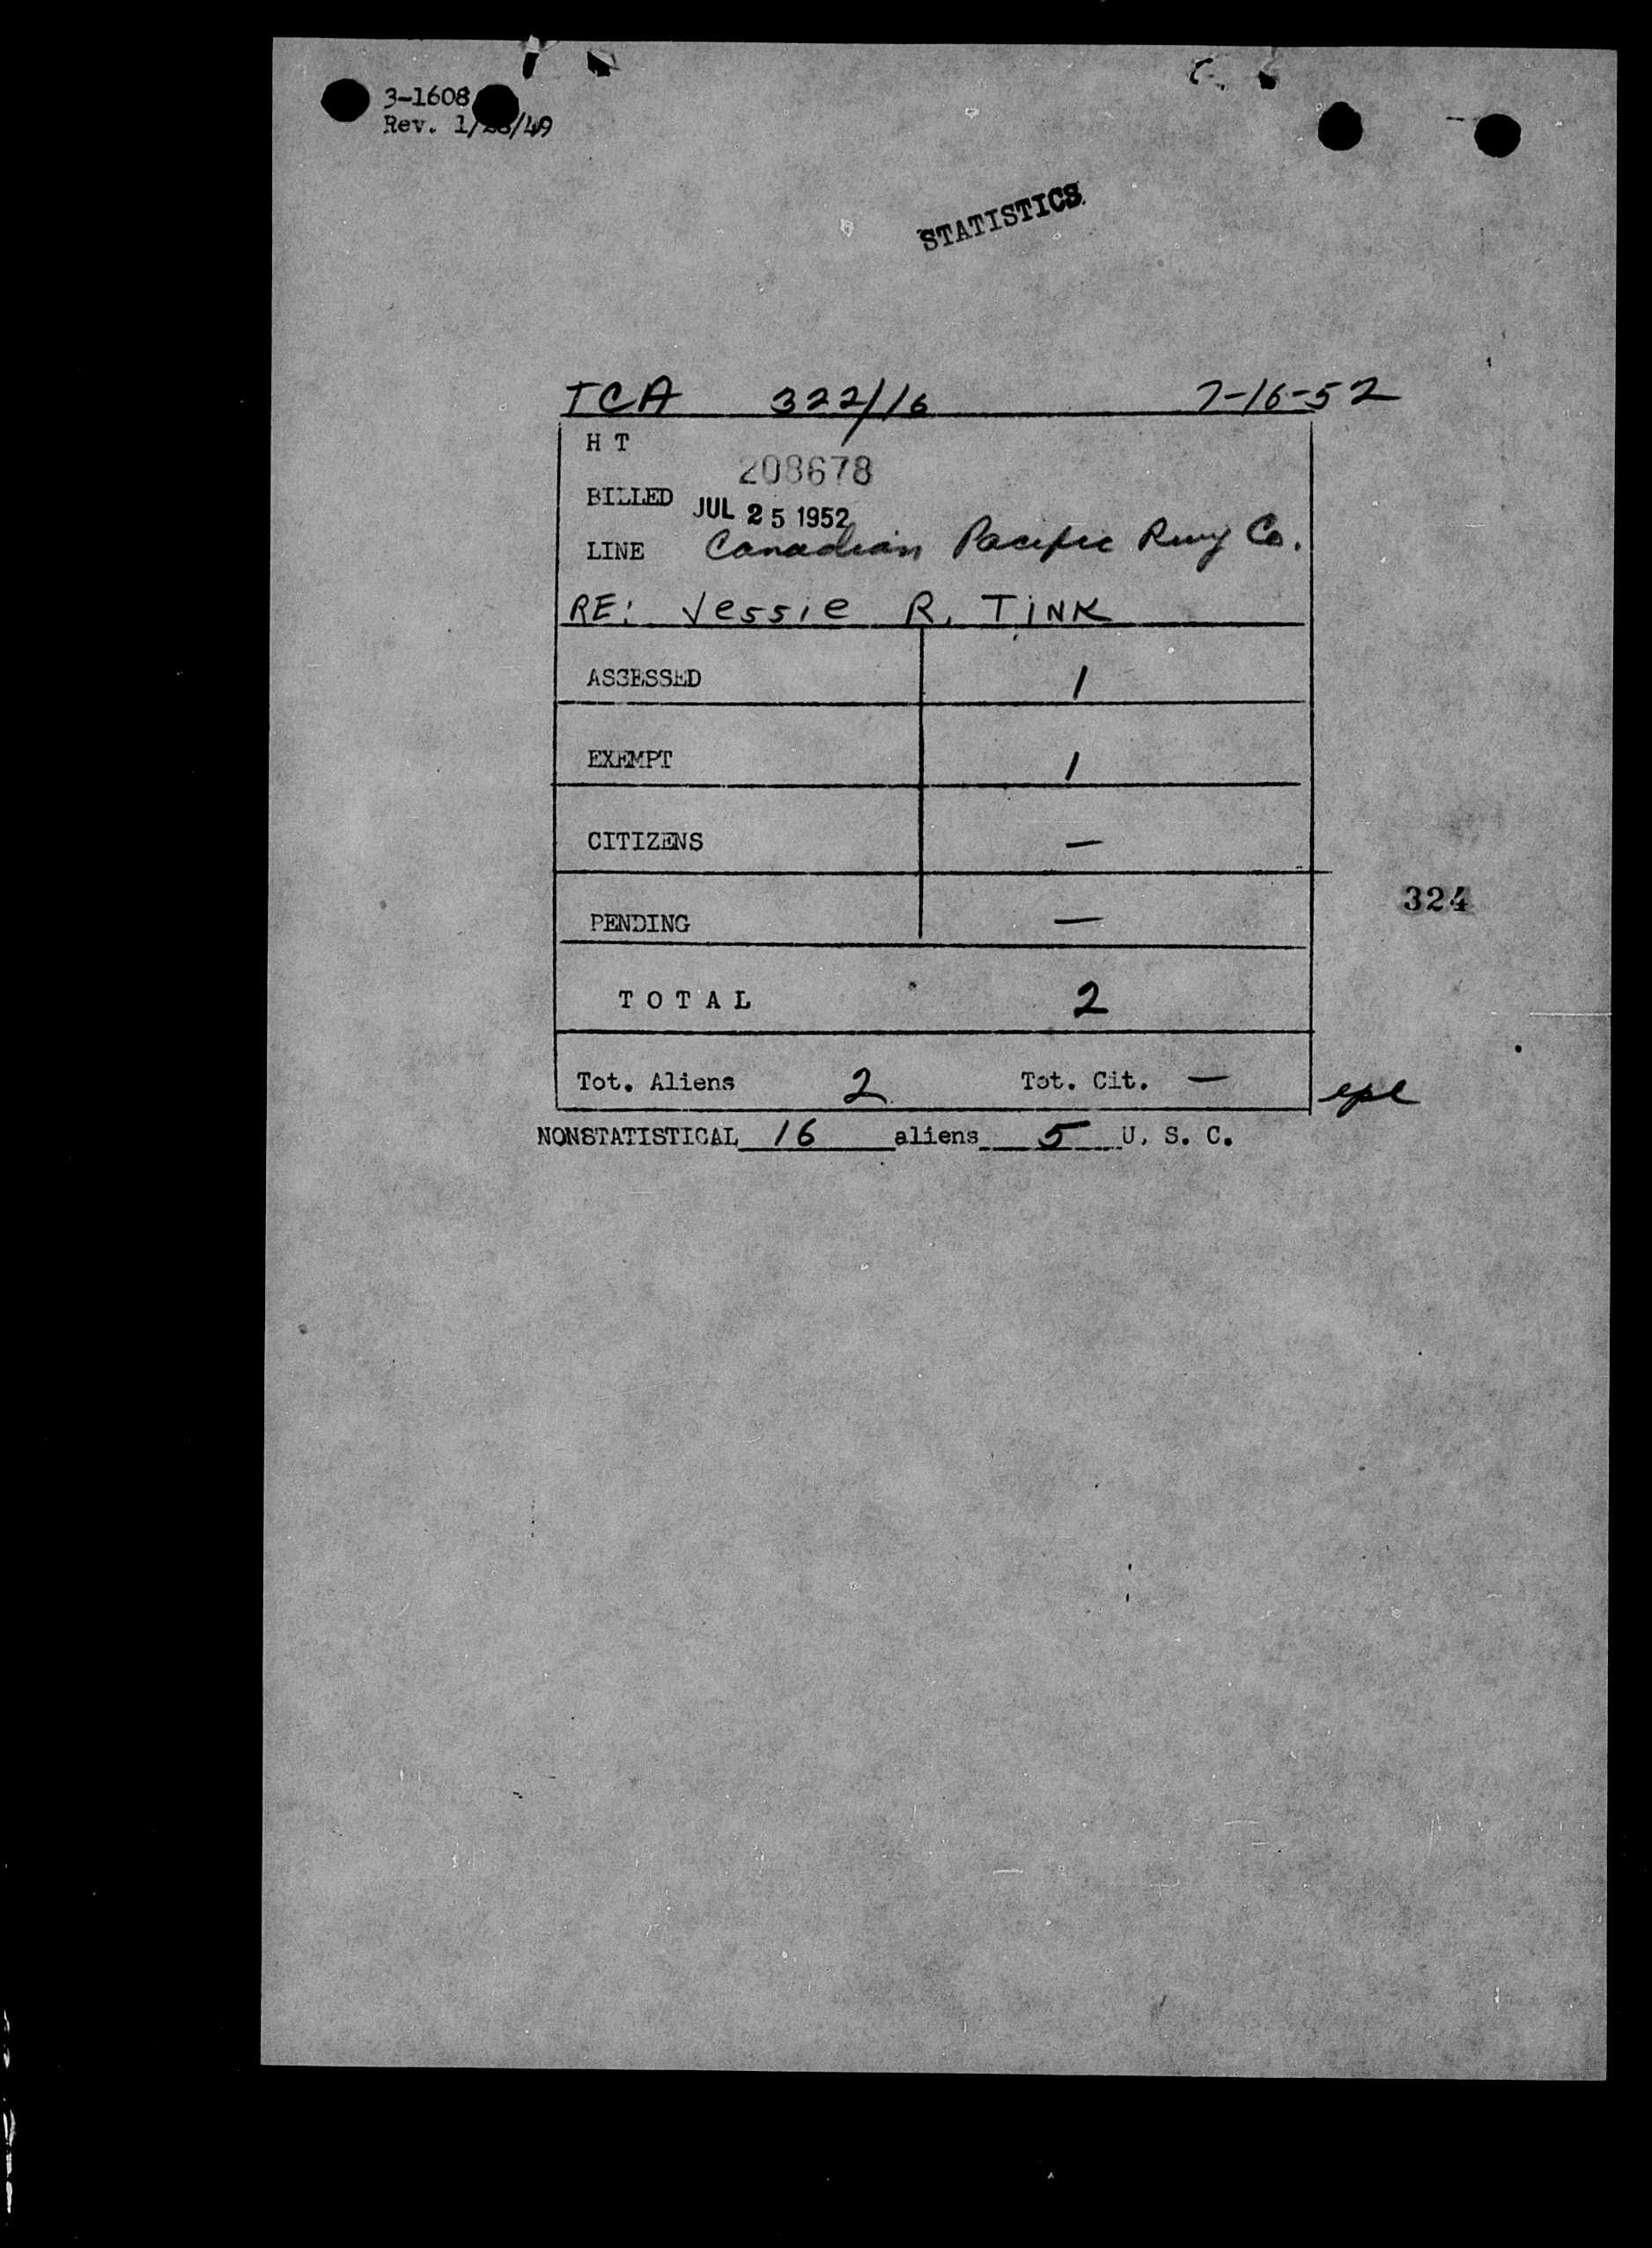 3-1608
Rev. 1/28/49
STATISTICS
TCA 322/16 7-16-52
H T
208678
BILLED JUL 25 1952
LINE Canadian Pacific Rwy Co.
RE: Jessie R. TINK
ASSESSED 1
EXEMPT 1
CITIZENS —
324
PENDING —
TOTAL 2
Tot. Aliens 2 Tot. Cit. —
NONSTATISTICAL 16 aliens 5 U. S. C.